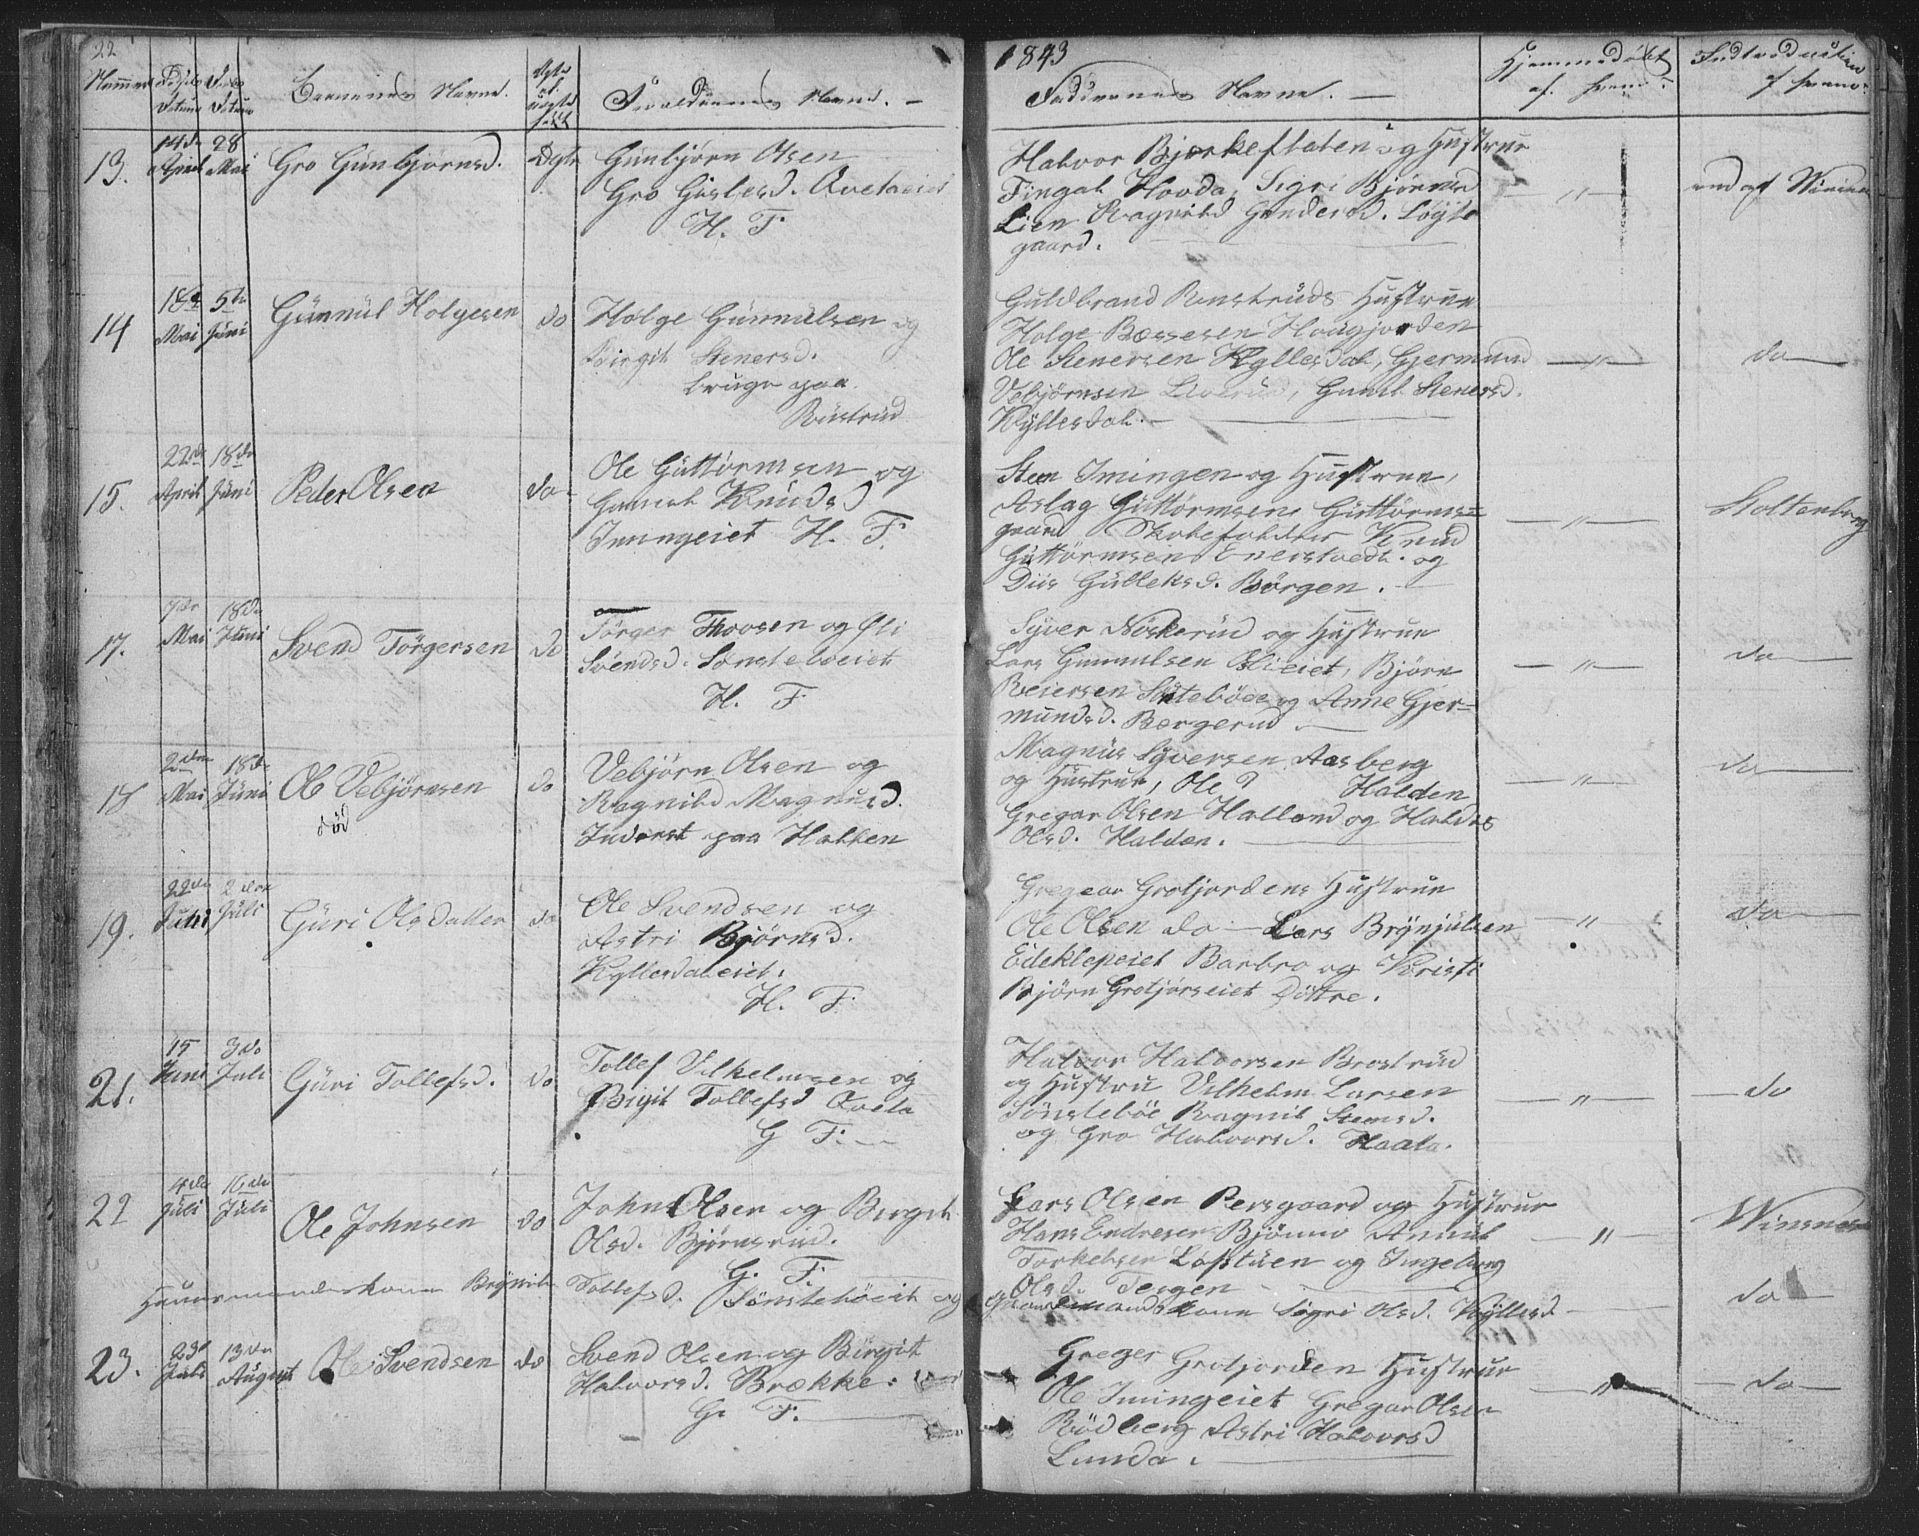 22
1843
Nummer
Fødsels Datum
Daabs Datum
Børnenes Navne.
Ægte el. uægte født
Forældrenes Navne. —
Faddernes Navne. —
Hjemmedøbt af hvem
Introduction af hvem
13.
14de April
28 Mai
Gro Gunbjørnsd.
Ægte
Gunbjørn Olsen
Gro Gislesd. Qvelaeiet
H. F.
Halvor Bjerkeflaten og Hustrue
Fingal Hovda, Sigri Bjørnsd
Lien Ragnild Gundersd. Løgts
gaard.
— " —
14
18de Mai
5te Juni
Gunnul Holgesen
do
Holge Gunnulsen og
Birgit Stenersd.
bruger paa
Rustrud
Guldbrand Ronstruds Hustrue
Holge Bossesen Hougjorden
Ole Stenersen Kyllesdal, Gjermund
Vebjørnsen Liverud, Gunil Stenersd.
Kyllesdal. —
— " —
do —
15.
22de April
18de Juni
Peder Olsen
do.
Ole Guttormsen og
Gunild Knudsd
Imingeiet H. F.
Sten Imingen og Hustrue,
Aslag Guttormsen Guttorms=
gaard Skoleholder Knud
Guttormsen Enerstvedt. og
Diis Gulleksd. Børgen. —
— " —
Stoltenberg
17.
7de Mai
18de Juni
Svend Törgersen
do
Törger Thovsen og Oli
Svendsd. Sönsteboeiet
H. F
Syver Nöskerud og Hustrue
Lars Gunnulsen Olieiet, Björn
Reiersen Sönsteböe og Anne Gjer=
mundsd. Bergerud —
— " —
do —
18
2den Mai
18de Juni
Ole Vebjörnsen
död
do
Vebjörn Olsen og
Ragnild Magnusd.
Inderst paa Halden
Magnus Syversen Aasberg
og Hustrue, Ole ? Halden
Gregar Olsen Halland og
Olsd. Halden. —
— " —
do —
19.
22de Juni
2den Juli
Guri Olsdatter
do
Ole Svendsen og
Astri Björnsd.
Kyllesdaleiet.
H. F.
Gregar Grotjordens Hustrue
Ole Olsen do — Lars Brynjulsen
Eideklepeiet Barbro og Kristi
Björn Grotjorseiet Döttre.
— " —
do —
21.
15 Juni
3de Juli
Guri Tollefsd.
do
Tollef Vilhelmsen og
Birgit Tollefsd Qvela
G F. —
Halvor Halvorsen Brostrud
og Hustru Vilhelm Larsen
Sönsteböe Ragnil Stensd.
og Gro Halvorsd. Haala.
— " —
— do
22
4de Juli
16de Juli
Ole Johnsen
do
John Olsen og Birgit
Olsd. Björnsrud.
G. F.
Lars Olsen Persgaard og Hustrue
Hans Endresen Björnno
Torkelsen Lofstuen og Ingeborg
Olsd. Teigen —
— " —
Winsnes
Huusmandskone Brynild Tollefsd. Sönsteböeiet og
Gaardmandskone Sigri Olsd. Kyllesd —
do —
23.
23de Juli
13de August
Ole Svendsen
do
Svend Olsen og Birgit
Halvorsd. Brække.
G. F. —
Greger Grotjorden Hustrue
Ole Imingeiet Gregar Olsen
Rödberg Astri Halvorsd
Lunda. —
— " —
— do —